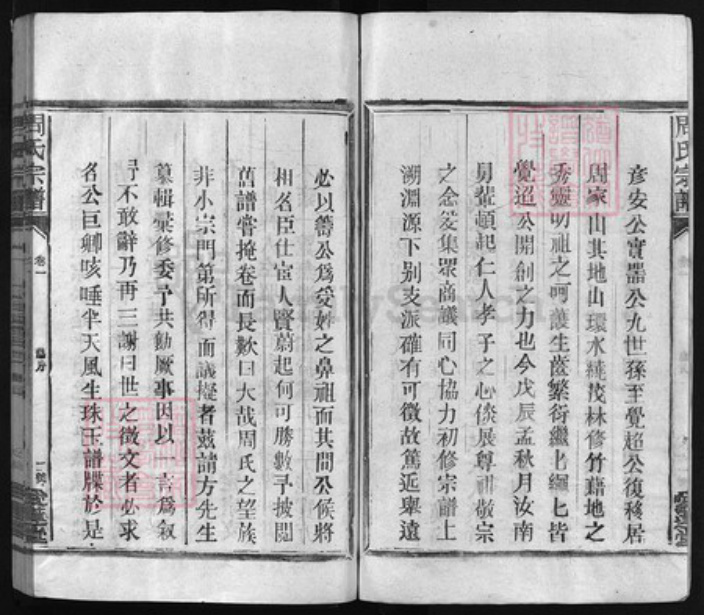 彦安公實器公九世孫至覺超公復移居
周家山其地山環水繞茂林修竹藉地之
秀靈明祖之呵護生齒繁衍繼七纘七皆
覺超公開創之力也今戊辰孟秋月汝南
舅輩頓起仁人孝子之心倐展尊祖敬宗
之念爰集眾商議同心協力初修宗譜上
溯淵源下別支派確有可徵故篤近舉遠
必以喬公為受姓之鼻祖而其間公候將
相名臣仕宦人賢蔚起何可勝數予披閱
舊譜嘗掩卷而長歎曰大哉周氏之望族
非小宗門第所得而議擬者茲請方先生
纂輯彙修委予共勷厥事因以一言為叙
予不敢辭乃再三謝曰世之徵文者必求
名公巨卿咳唾半天風生珠玉譜牒於是
周氏宗譜
卷一
周氏宗譜
FamilySearch